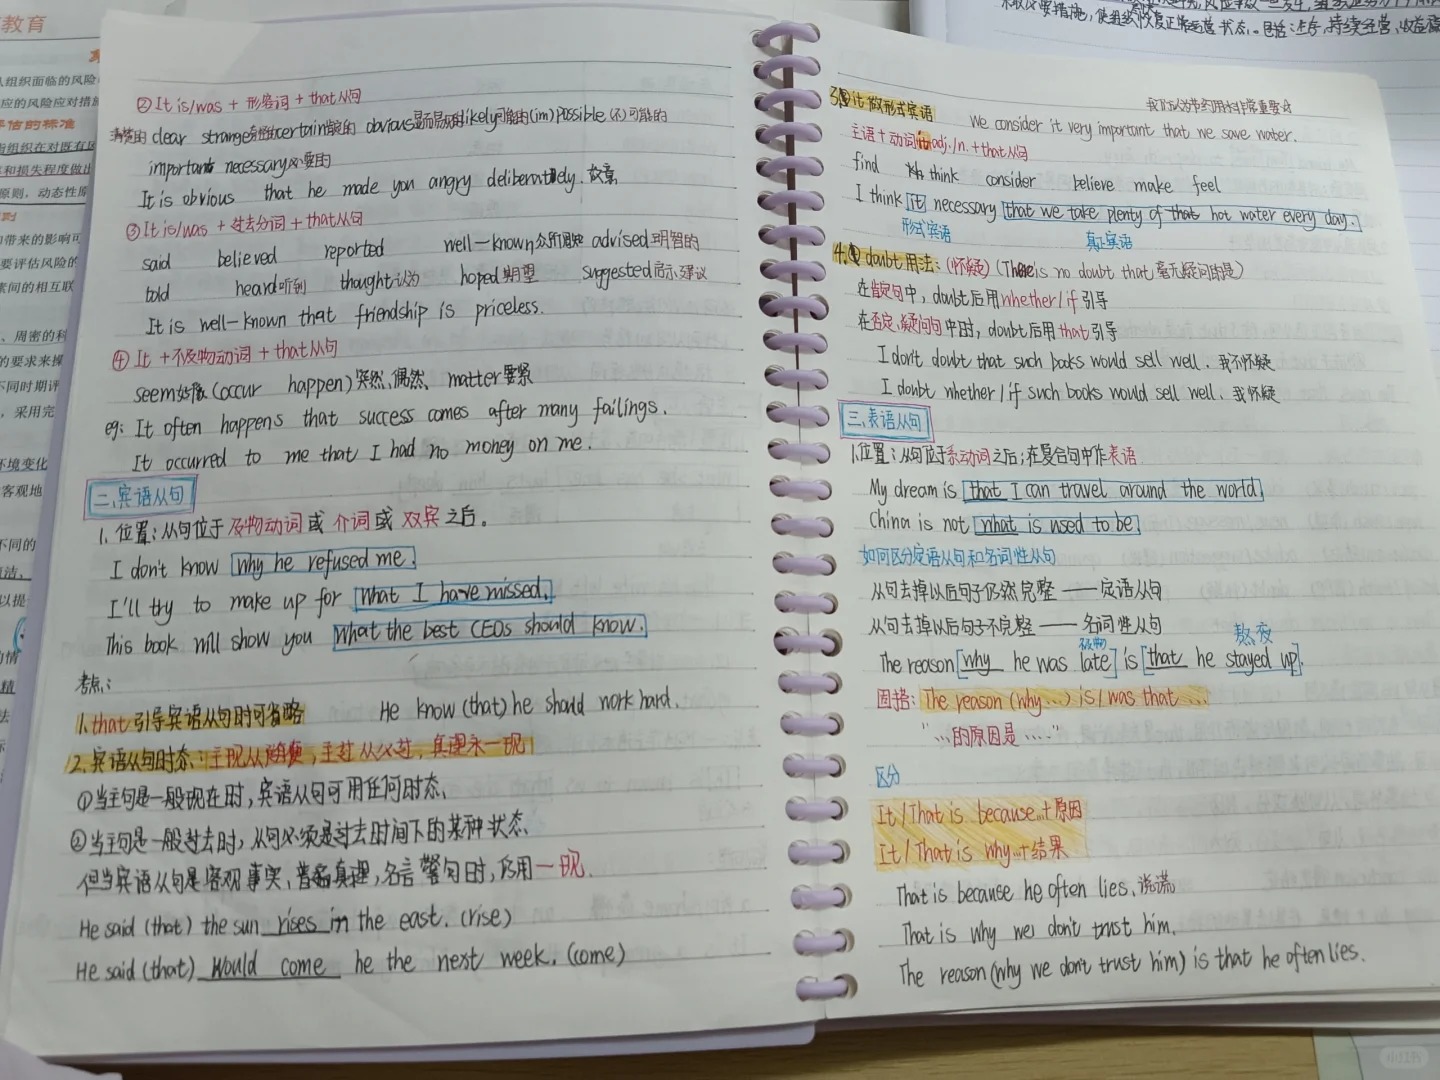 ②It is/was + 形容词 + that从句
清楚的 clear strange奇怪的certain肯定的 obvious显而易见的likely可能的(im)possible(不)可能的
important necessary必要的
It is obvious that he made you angry deliberately. 故意
③It is/was + 过去分词 + that从句
said believed reported well-known众所周知 advised明智的
told heard听到 thought认为 hoped期望 suggested启示、建议
It is well-known that friendship is priceless.
④It + 不及物动词 + that从句
seem好像(occur happen)突然、偶然、matter要紧
eg: It often happens that success comes after many failings.
It occurred to me that I had no money on me.
二、宾语从句
1. 位置:从句位于 及物动词 或 介词 或 双宾 之后。
I don't know why he refused me.
I'll try to make up for what I have missed.
This book will show you what the best CEOs should know.
考点:
1. that引导宾语从句时可省略 He know (that) he should work hard.
2. 宾语从句时态:主现从随便,主过从必过,真理永一现
①当主句是一般现在时,宾语从句可用任何时态、
②当主句是一般过去时,从句必须是过去时间下的某种状态、
但当宾语从句是客观事实、普遍真理,名言警句时,仍用一现.
He said (that) the sun rises in the east. (rise)
He said (that) would come he the next week. (come)
it做形式宾语 我们认为节约用水非常重要
We consider it very important that we save water.
主语+动词it+adj./n.+that从句
find think consider believe make feel
I think it necessary that we take plenty of that hot water every day.
形式宾语 真正宾语
4. doubt用法:(怀疑)(There is no doubt that 毫无疑问的是)
在肯定句中,doubt后用whether/if引导
在否定、疑问句中时,doubt后用that引导
I don't doubt that such books would sell well. 我不怀疑
I doubt whether/if such books would sell well. 我怀疑
三、表语从句
1. 位置:从句位于系动词之后;在复合句中作表语.
My dream is that I can travel around the world.
China is not what is used to be.
如何区分定语从句和名词性从句
从句去掉以后句子仍然完整——定语从句
从句去掉以后句子不完整——名词性从句
熬夜
The reason why he was late is that he stayed up.
固搭: The reason (why...) is/was that ...
"...的原因是....."
区分
It/That is because...+原因
It/That is why...+结果
That is because he often lies. 说谎
That is why we don't trust him.
The reason (why we don't trust him) is that he often lies.